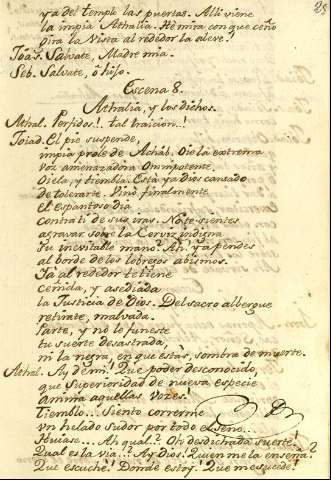 25
ya del temple las puertas. Alli viene
la impia Athalia. Hé mira con que ceño
gira la vista al rededor la aleve!
Joas. Salvate, Madre mia.
Seb. Salvate, ó hijo.
Escena 8.
Athalia, y los dichos.
Athal. Perfidos..! tal traicion..!
Joiad. El pie suspende,
impia prole de Achâb. Oie la extrema
voz amenazadora Omnipotente
Oiela, y tiembla. Está ya Dios cansado
de tolerarte. Vino finalmente
el espantoso dia
contra ti de sus iras. No te sientes
agravar sobre la Cerviz indigna
su inevitable mano? Ah! ya pendes
al borde de los lobregos abismos.
Ya al rededor te tiene
ceñida, y asediada
la Justicia de Dios. Del sacro albergue
retirate, malvada.
Parte, y no le funeste
tu suerte desastrada,
ni la negra, en que estàs, sombra de muerte.
Athal. Ay de mi! Que poder desconocido,
que superioridad de nueva especie
anima aquellas voces!
Tiemblo... Siento correrme
un helado sudor por todo el seno...
Huiase... Ah qual? Oh desdichada suerte!
Qual es la via..? Ay Dios! Quien me la enseña?
Que escuché! Donde estoy! Que me sucede!